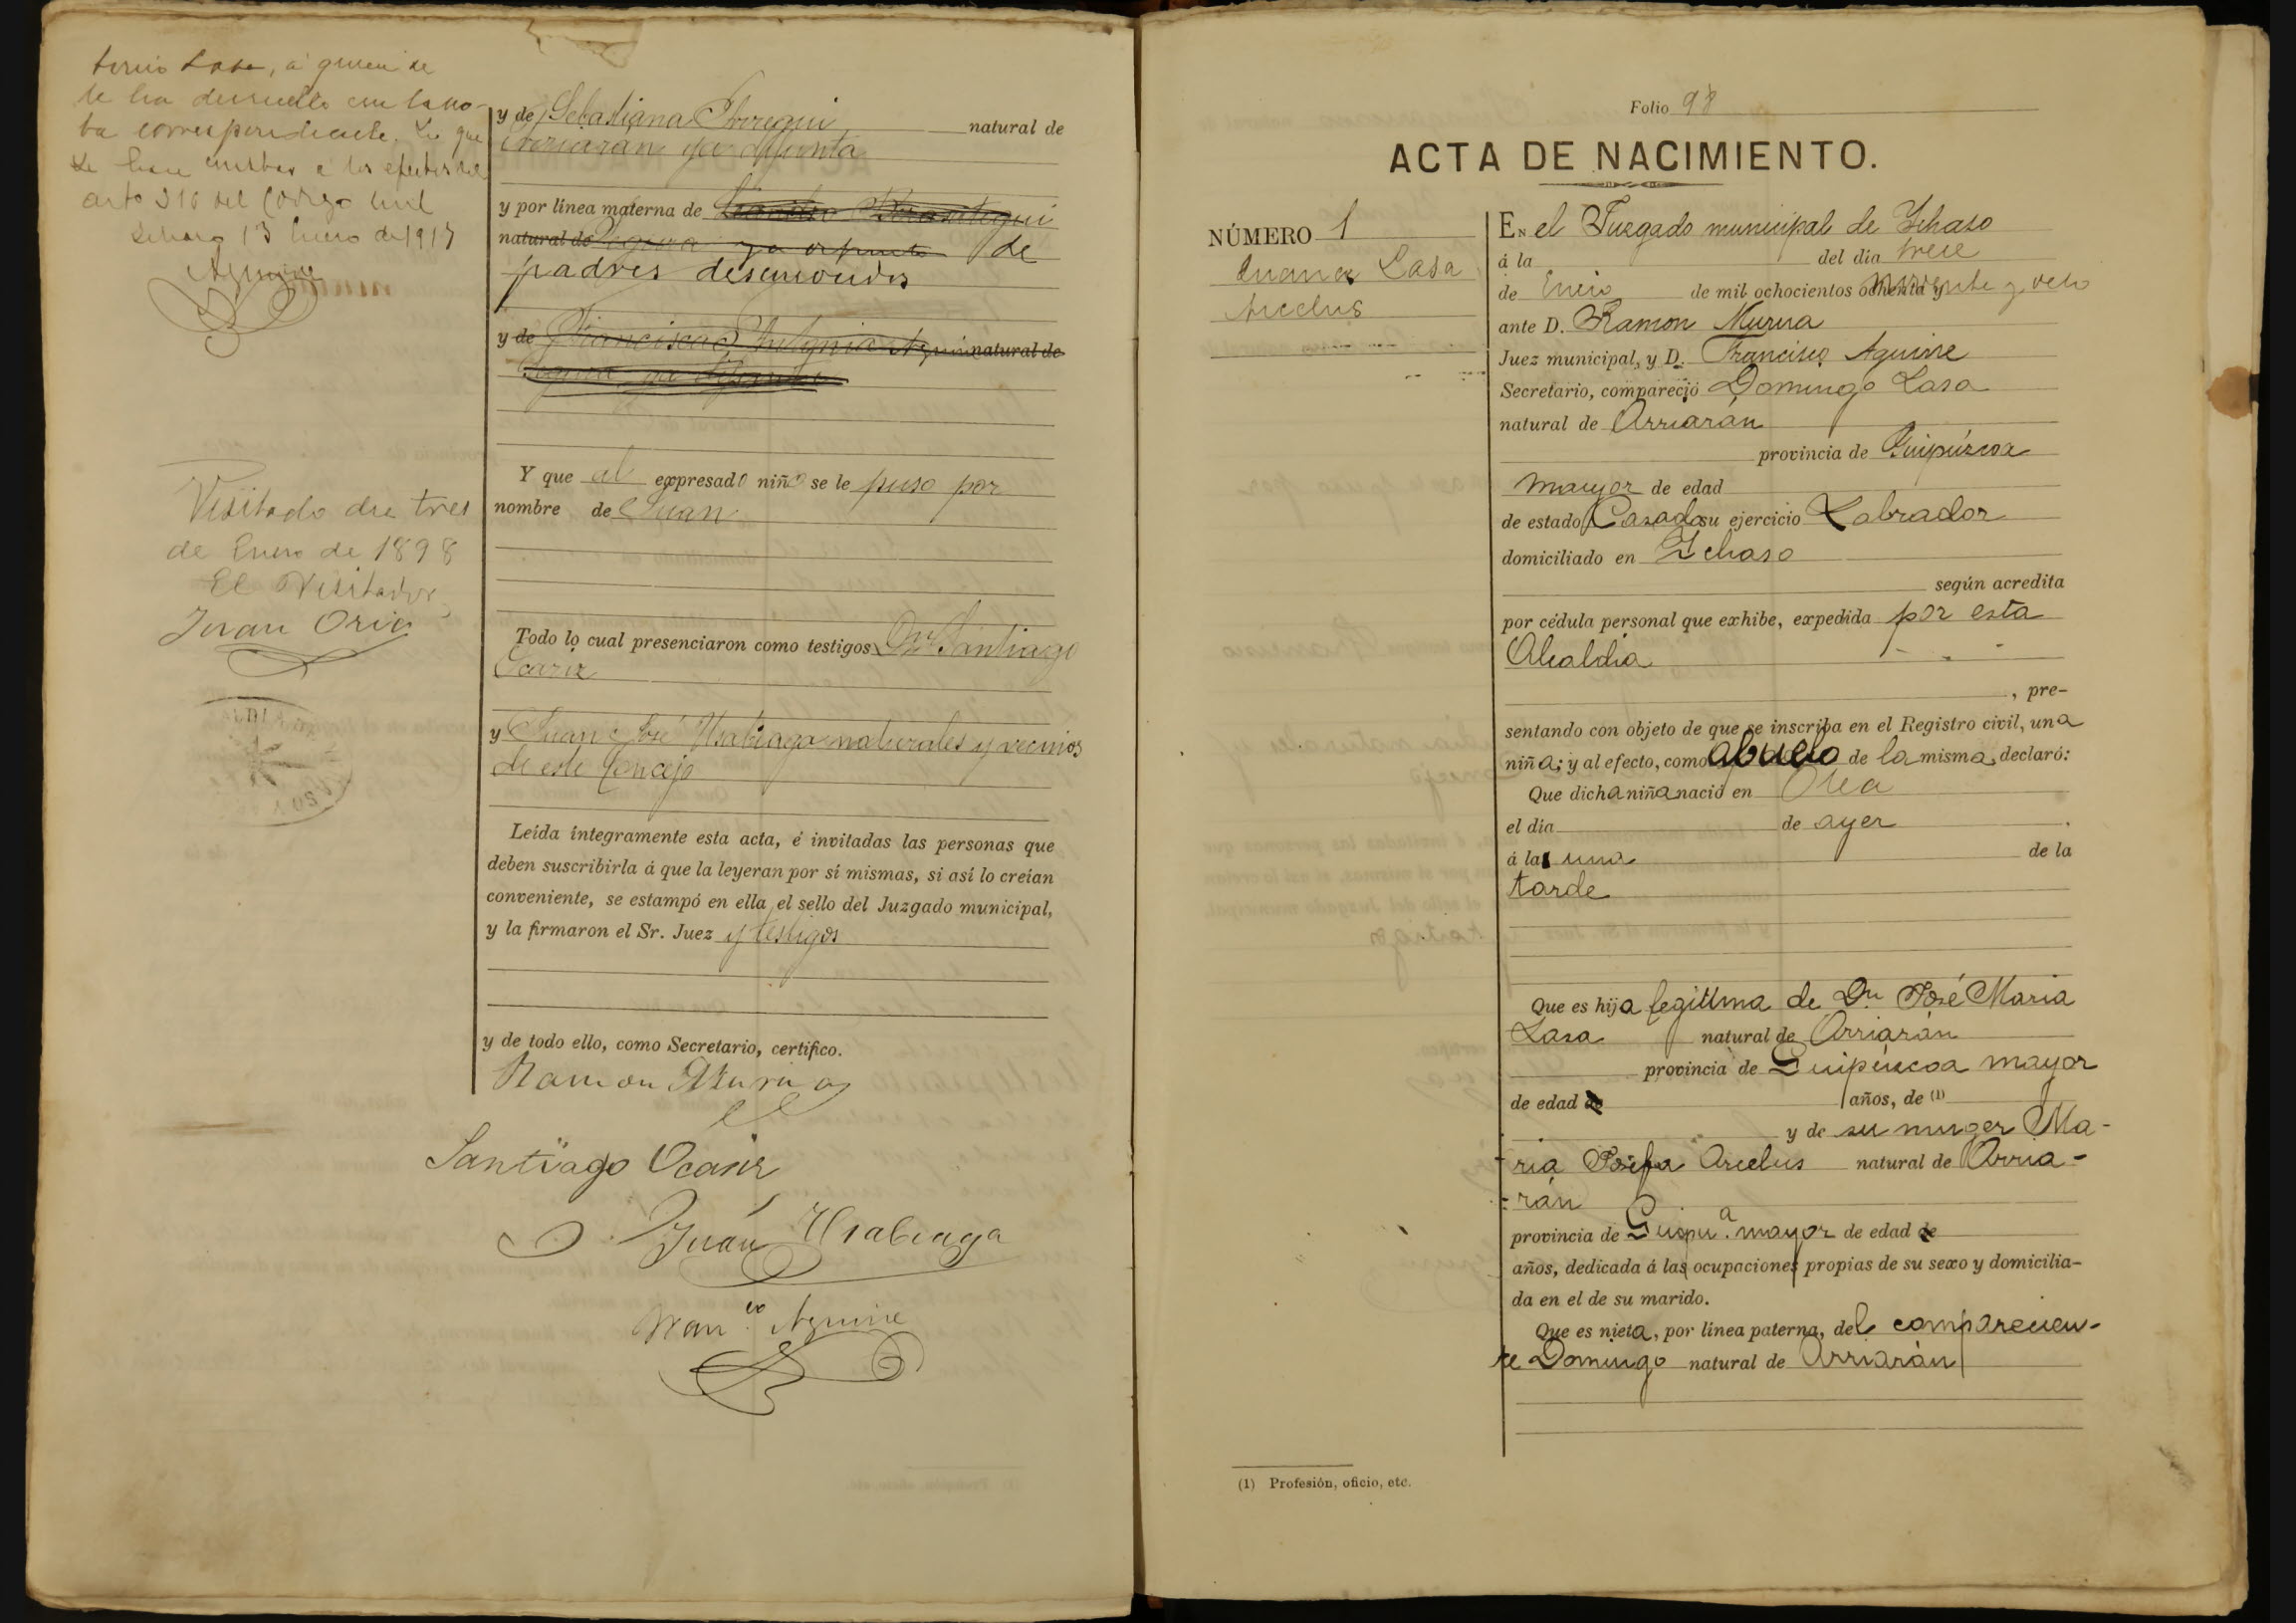 se ha devuelto con la no-
ta correspondiente. Lo que
se hace constar a los efectos del
arto 316 del Código Civil
13 Enero de 1917
Aguirre
Visitado dia tres
de Enero de 1898
El Visitador
Juan Oria
y de Sebastiana natural de
Arriarán ya difunta
y por línea materna de
natural de Segura ya difunto de
padres desconocidos
y de Francisca natural de
Segura, ya difunta
Y que al expresado niño se le puso por
nombre de Juan
Todo lo cual presenciaron como testigos Dn Santiago
Ocariz
y Juan José Usabiaga naturales y vecinos
de este Concejo
Leída íntegramente esta acta, é invitadas las personas que
deben suscribirla á que la leyeran por sí mismas, si así lo creían
conveniente, se estampó en ella el sello del Juzgado municipal,
y la firmaron el Sr. Juez y testigos
y de todo ello, como Secretario, certifico.
Ramon Murua
Santiago Ocariz
Juán Usabiaga
Franco Aguirre
Folio 98
ACTA DE NACIMIENTO.
NÚMERO 1
Juana Lasa
Arcelus
EN el Juzgado municipal de Ichaso
á la del día trece
de Enero de mil ochocientos ochenta y noventa y ocho
ante D. Ramon Murua
Juez municipal, y D. Francisco Aguirre
Secretario, compareció Domingo Lasa
natural de Arriarán
provincia de Guipúzcoa
mayor de edad
de estado Casado su ejercicio Labrador
domiciliado en Ichaso
según acredita
por cédula personal que exhibe, expedida por esta
Alcaldia
, pre-
sentando con objeto de que se inscriba en el Registro civil, una
niña; y al efecto, como abuelo de la misma, declaró:
Que dicha niña nació en Olea
el día de ayer
á la una de la
tarde
Que es hija legitima de Dn José Maria
Lasa natural de Arriarán
provincia de Guipúzcoa mayor
de edad de años, de (1)
y de su muger Ma-
-ria Josefa Arcelus natural de Arria-
-rán
provincia de Guipua. mayor de edad de
años, dedicada á las ocupaciones propias de su sexo y domicilia-
da en el de su marido.
Que es nieta, por línea paterna, del comparecien-
te Domingo natural de Arriarán
(1) Profesión, oficio, etc.